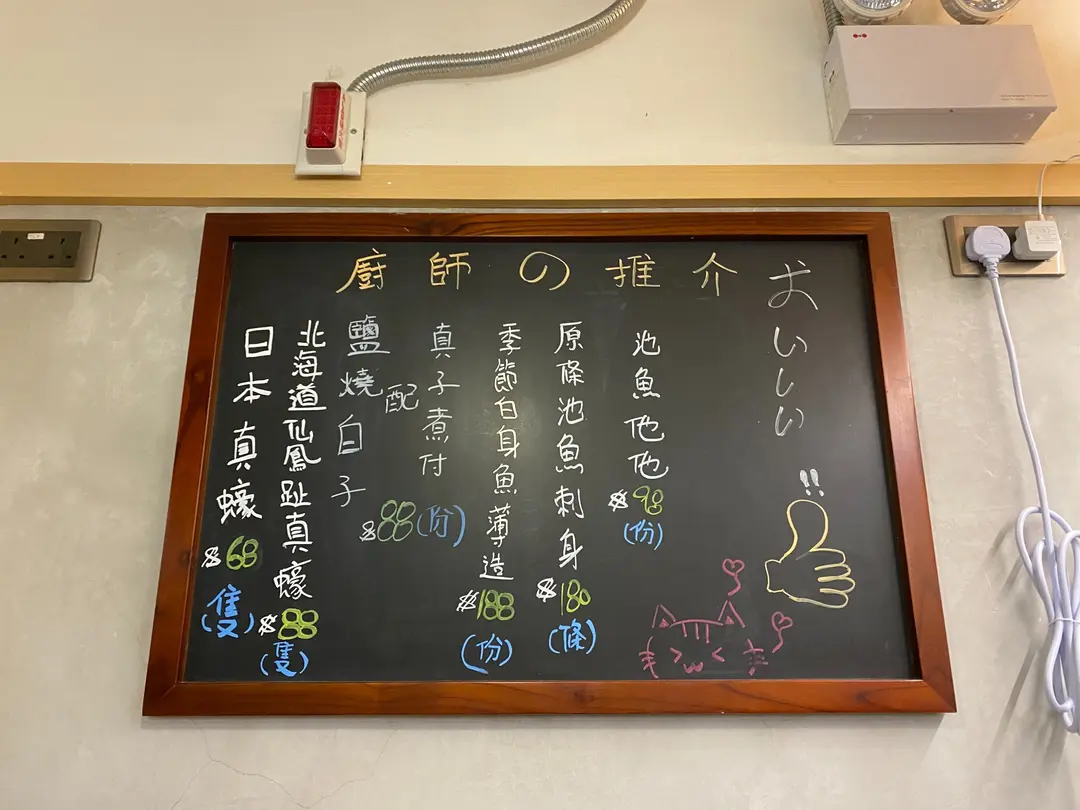 廚師の推介
おいしい!!
池魚他他
$98
(份)
原條池魚刺身
$180
(條)
季節白身魚薄造
$188
(份)
真子煮付
配
鹽燒白子
$88(份)
北海道仙鳳趾真蠔
$88
(隻)
日本真蠔
$68
(隻)